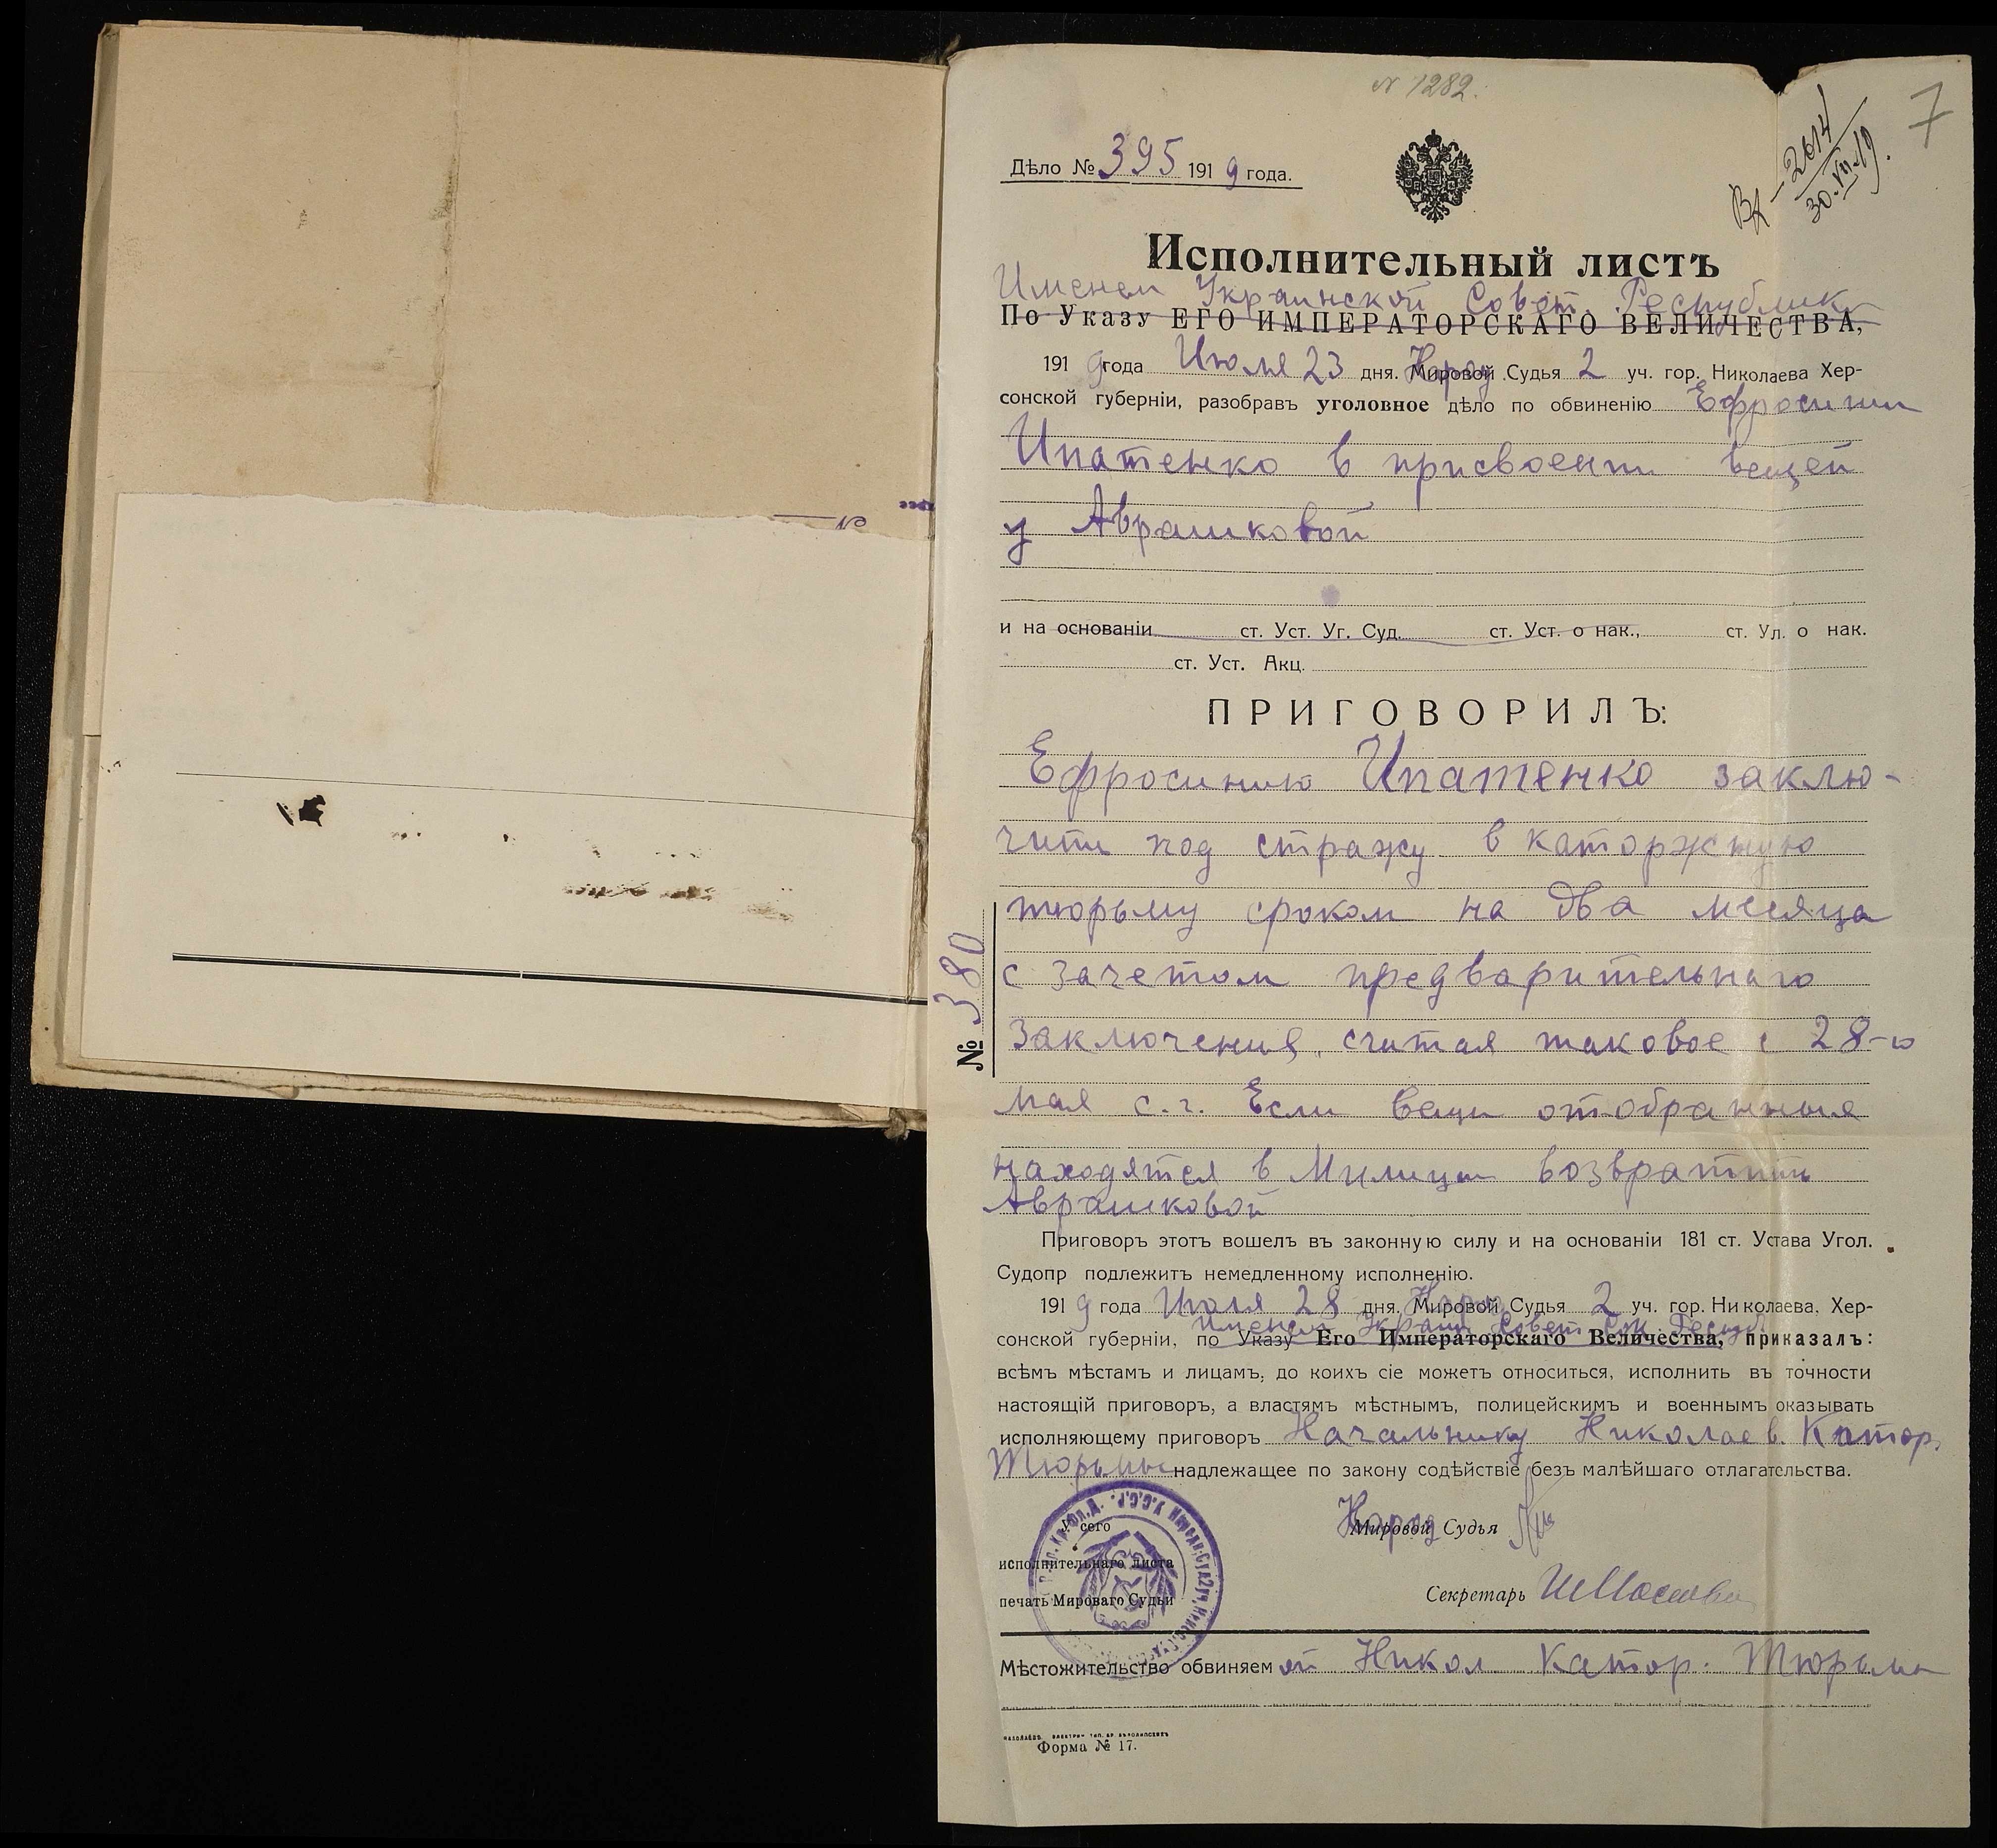 N 1282.
7
Вх - 2614
30.VII.19.
Дѣло № 395 1919 года.
Исполнительный листъ
Именем Украинской Совет. Республики
По Указу ЕГО ИМПЕРАТОРСКАГО ВЕЛИЧЕСТВА,
1919 года Июля 23 дня. Народ Мировой Судья 2 уч. гор. Николаева Хер-
сонской губерніи, разобравъ уголовное дѣло по обвиненію Ефросинии
Ипатенко в присвоении вещей
у Аврашковой
и на основаніи ст. Уст. Уг. Суд. ст. Уст. о нак., ст. Ул. о нак.
ст. Уст. Акц.
ПРИГОВОРИЛЪ:
Ефросинию Ипатенко заклю-
чить под стражу в каторжную
тюрьму сроком на два месяца
с зачетом предварительнаго
заключения, считая таковое с 28-го
мая с.г. Если вещи отобранныя
находятся в Милиции возвратить
Аврашковой
№ 380
Приговоръ этотъ вошелъ въ законную силу и на основаніи 181 ст. Устава Угол.
Судопр подлежитъ немедленному исполненію.
1919 года Июля 28 дня. Народ Мировой Судья 2 уч. гор. Николаева, Хер-
Именем Украин Совет Соц Респуб
сонской губерніи, по Указу Его Императорскаго Величества, приказалъ:
всѣмъ мѣстамъ и лицамъ, до коихъ сіе можетъ относиться, исполнить въ точности
настоящій приговоръ, а властямъ мѣстнымъ, полицейскимъ и военнымъ оказывать
исполняющему приговоръ Начальнику Николаев. Катор.
Тюрьмы надлежащее по закону содѣйствіе безъ малѣйшаго отлагательства.
У сего
Народ Мировой Судья
исполнительнаго листа
печать Мироваго Судьи
Секретарь
Мѣстожительство обвиняемой Никол. Катор. Тюрьма
Форма № 17.